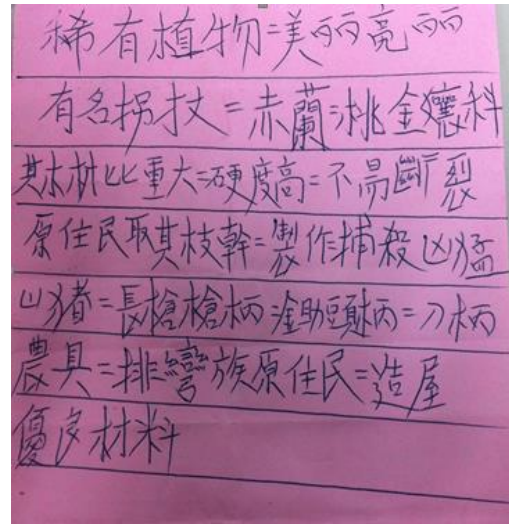 稀有植物=美丽亮丽
有名拐扙=赤蘭=桃金孃科
其木材比重大=硬度高=不易斷裂
原住民取其枝幹=製作捕殺凶猛
山猪=長槍槍柄=鋤頭柄=刀柄
農具=排彎族原住民=造屋
優良材料